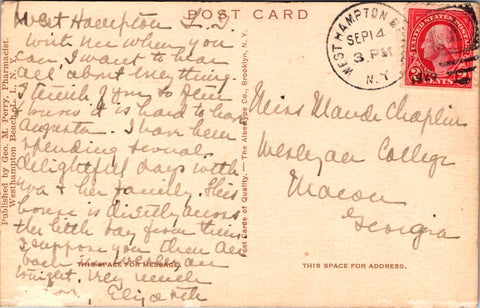 West Hampton L. I.
POST CARD
with me when you
can, I want to hear
all about everything.
I think of you so
knows it is hard to leave
Augusta. I have been
spending several
delightful days with
& her family. This
house is directly across
the little bay from
I suppose you
back
tonight. Very much
Elizabeth
THIS SPACE FOR MESSAGE.
Published by Geo. M. Perry, Pharmacist.
Westhampton Beach,
Post Cards of Quality. — The Albertype Co., Brooklyn, N. Y.
WESTHAMPTON BEACH
SEP 14
3 PM
N.Y.
UNITED STATES POSTAGE
2 CENTS 2
Miss Maude Chaplin
Wesleyan College
Macon
Georgia
THIS SPACE FOR ADDRESS.